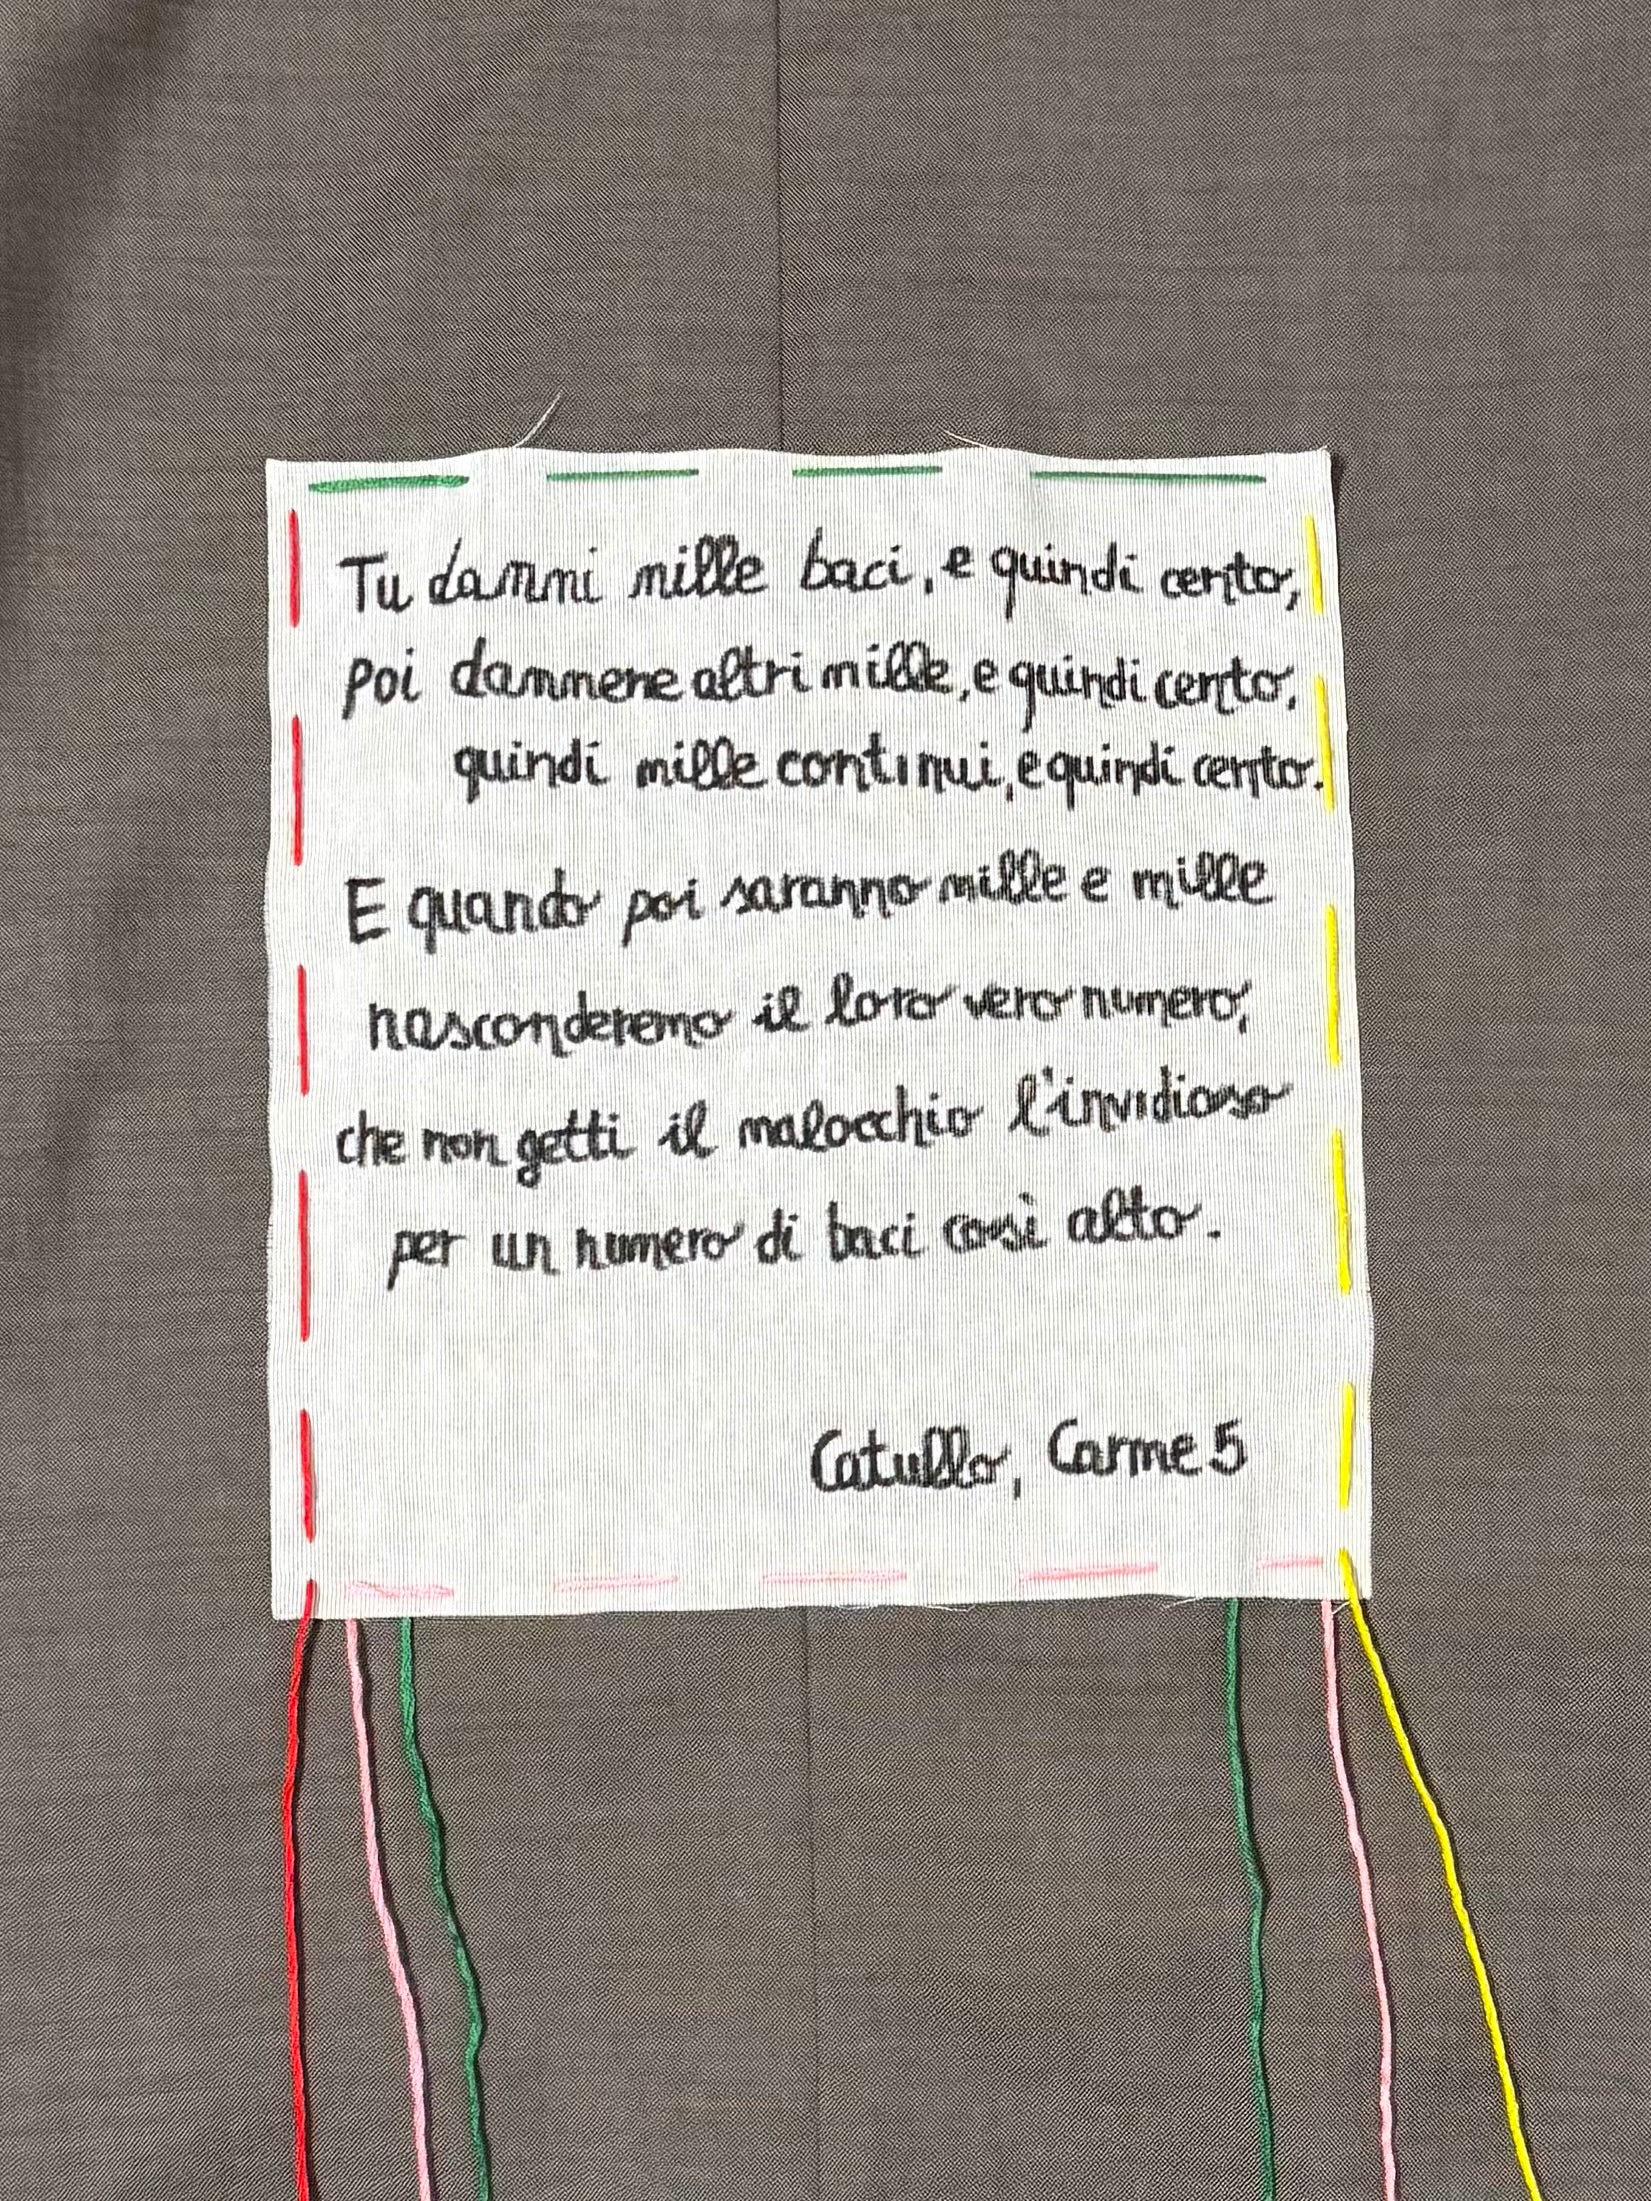 Tu dammi mille baci, e quindi cento,
poi dammene altri mille, e quindi cento,
quindi mille continui, e quindi cento.
E quando poi saranno mille e mille
nasconderemo il loro vero numero,
che non getti il malocchio l'invidioso
per un numero di baci così alto.
Catullo, Carme 5